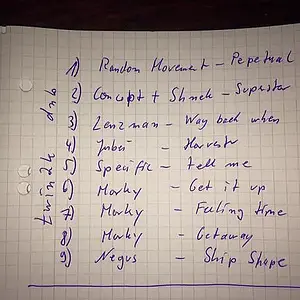 1) Random Movement - Pepetual
2) Concept + Shnek - Supastar
3) Lenzman - Way back when
4) Jubei - Harvester
5) Specific - tell me
6) Marky - Get it up
7) Marky - Feeling time
8) Marky - Getaway
9) Negus - Ship Shape
twindk dnb